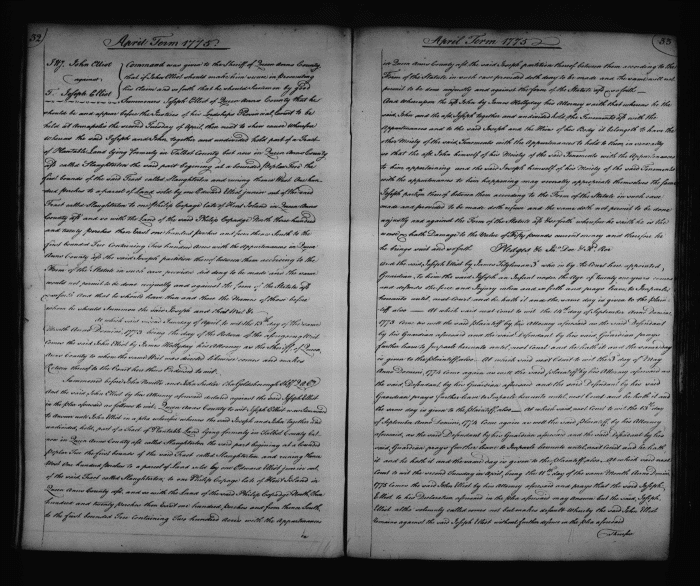 32
April Term 1775
John Elliot
against
Joseph Elliot
Command was given to the Sheriff of Queen Anns County
that if John Elliot should make him secure in prosecuting
his Claim and so forth that he should Summon by good
Summoners Joseph Elliot of Queen Anns County that he
should be and appear before the Justices of his Lordships Provincial Court to be
held at Annapolis the second Tuesday of April, then next to shew cause wherefore
whereas the said Joseph and John, together and undivided hold, part of a Tract
of Land lying formerly in Talbot County but now in Queen Anns County
called Slaughterton the said part begining at a bounded Poplar Tree the
first bounds of the said Tract called Slaughterton and runing thence West One hun-
dred perches to a parcel of Land sold by one Edward Elliot junior out of the said
Tract called Slaughterton to one Philip Copage late of Kent Island in Queen Anns
County and so with the Land of the said Philip Copage North three hundred
and twenty perches then East one hundred perches and from thence South to the
first bounded Tree Containing Two hundred Acres with the appurtenances in Queen
Anns County the said Joseph partition thereof between them according to the
Form of the Statute in such case provided did deny to be made and the same
would not permit to be done unjustly and against the form of the Statute
so forth And that he should have then and there the Names of those before
whom he should Summon the said Joseph and that Writ &c
At which said second Tuesday of April to wit the 13th day of the same
Month Anno Domini, 1773
Came the said John Elliot by his Attorney and the Sheriff of Queen
Anns County to whom the same Writ was directed likewise comes and makes
Return thereof to the Court here thus Endorsed to wit.
Summoned before John and John
And the said John Elliot by his Attorney aforesaid declared against the said Joseph Elliot
in the plea aforesaid as follows to wit Queen Anns County to wit Joseph Elliot was Summoned
to answer unto John Elliot in a plea wherefore whereas the said Joseph and John together and
undivided, hold, part of a Tract of Land lying formerly in Talbot County but
now in Queen Anns County called Slaughterton, the said part begining at a bounded
Poplar Tree the first bounds of the said Tract called Slaughterton, and runing thence
West One hundred perches to a parcel of Land sold by one Edward Elliot junior out
of the said Tract called Slaughterton, to one Philip Copage late of Kent Island in
Queen Anns County and so with the Lands of the said Philip Copage North three
hundred and twenty perches then East one hundred, perches and from thence South,
to the first bounded Tree Containing Two hundred Acres with the Appurtenances
in
April Term 1775
33
in Queen Anns County the said Joseph partition thereof between them according to the
Form of the Statute in such case provided doth deny to be made and the same will not
permit to be done unjustly and against the form of the Statute so forth
And whereupon the John by James his Attorney saith that whereas he the
said John and the Joseph together and undivided hold the Tenements with the
Appurtenances and to the said Joseph and the Heirs of his Body it belongeth to have the
other Moiety of the said, Tenements with the Appurtenances to hold to them in severalty
so that the John himself of his Moiety of the said Tenements with the Appurtenances
to him appertaining and the said Joseph himself of his Moiety of the said Tenements
with the appurtenances to him happening may severally appropriate themselves the same
Joseph partition thereof between them according to the Form of the Statute in such case
made and provided to be made doth refuse and the same doth not permit to be done
unjustly and against the Form of the Statute so forth wherefore he saith he is the
worse and hath Damage to the Value of Fifty pounds current money and therefore he
he brings suit and so forth Pledges &c Jno Doe & Rd Roe
And the said Joseph Elliot by James Tilghman 3d who is by the Court here appointed,
Guardian, to him the said Joseph an Infant under the Age of twenty one years comes
and defends the force and Injury when and so forth and prays leave to Imparle
hereunto until next Court and he hath it and the same day is given to the Plain-
tiff also At which next Court to wit the 14th day of September Anno Domini,
1773 Came as well the said Plaintiff by his Attorney aforesaid as the said Defendant
by his Guardian aforesaid and the said Defendant by his said, Guardian prays
further leave to Imparle hereunto until next Court and he hath it and the same day
is given to the Plaintiff also. At which said next Court to wit the 3d day of May
Anno Domini, 1774 Came again as well the said plaintiff by his Attorney aforesaid as
the said Defendant by his Guardian aforesaid and the said Defendant by his said
Guardian prays further leave to Imparle hereunto until next Court and he hath it and
the same day is given to the Plaintiff also At which said next Court to wit the 13th day
of September Anno Domini, 1774 Came again as well the said Plaintiff by his Attorney
aforesaid, as the said Defendant by his Guardian aforesaid and the said Defendant by his
said, Guardian prays further leave to Imparle hereunto until next Court and he hath
it and he hath it and the same day is given to the Plaintiff also. At which said next
Court to wit the second Tuesday in April, being the 11th day of the same Month Anno Domini
1775 Comes the said John Elliot by his Attorney aforesaid and prays that the said, Joseph
Elliot to his Declaration aforesaid in the plea aforesaid may answer but the said Joseph,
Elliot altho solemnly called comes not but makes default whereby the said John Elliot
remains against the said Joseph Elliot without further defence in the plea aforesaid
Therefore